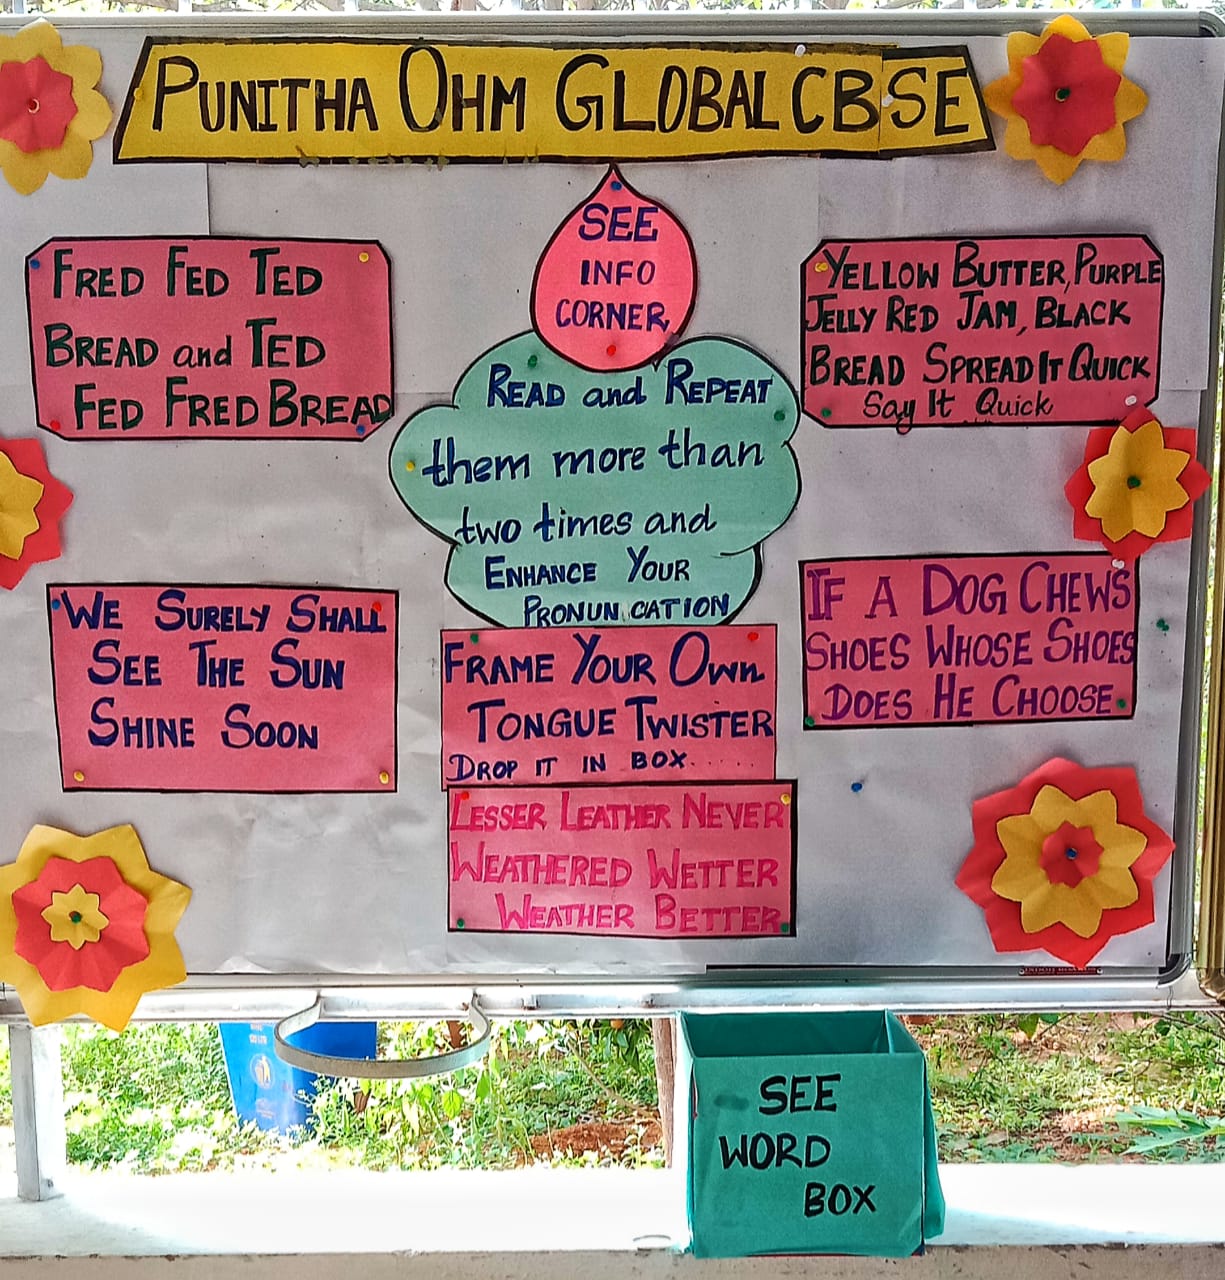 PUNITHA OHM GLOBAL CBSE
SEE
INFO
CORNER
FRED FED TED
BREAD and TED
FED FRED BREAD
READ and REPEAT
them more than
two times and
ENHANCE YOUR
PRONUNCATION
YELLOW BUTTER, PURPLE
JELLY RED JAM, BLACK
BREAD SPREAD IT QUICK
Say It Quick
WE SURELY SHALL
SEE THE SUN
SHINE SOON
FRAME YOUR OWN
TONGUE TWISTER
DROP IT IN BOX......
IF A DOG CHEWS
SHOES WHOSE SHOES
DOES HE CHOOSE
LESSER LEATHER NEVER
WEATHERED WETTER
WEATHER BETTER
SEE
WORD
BOX